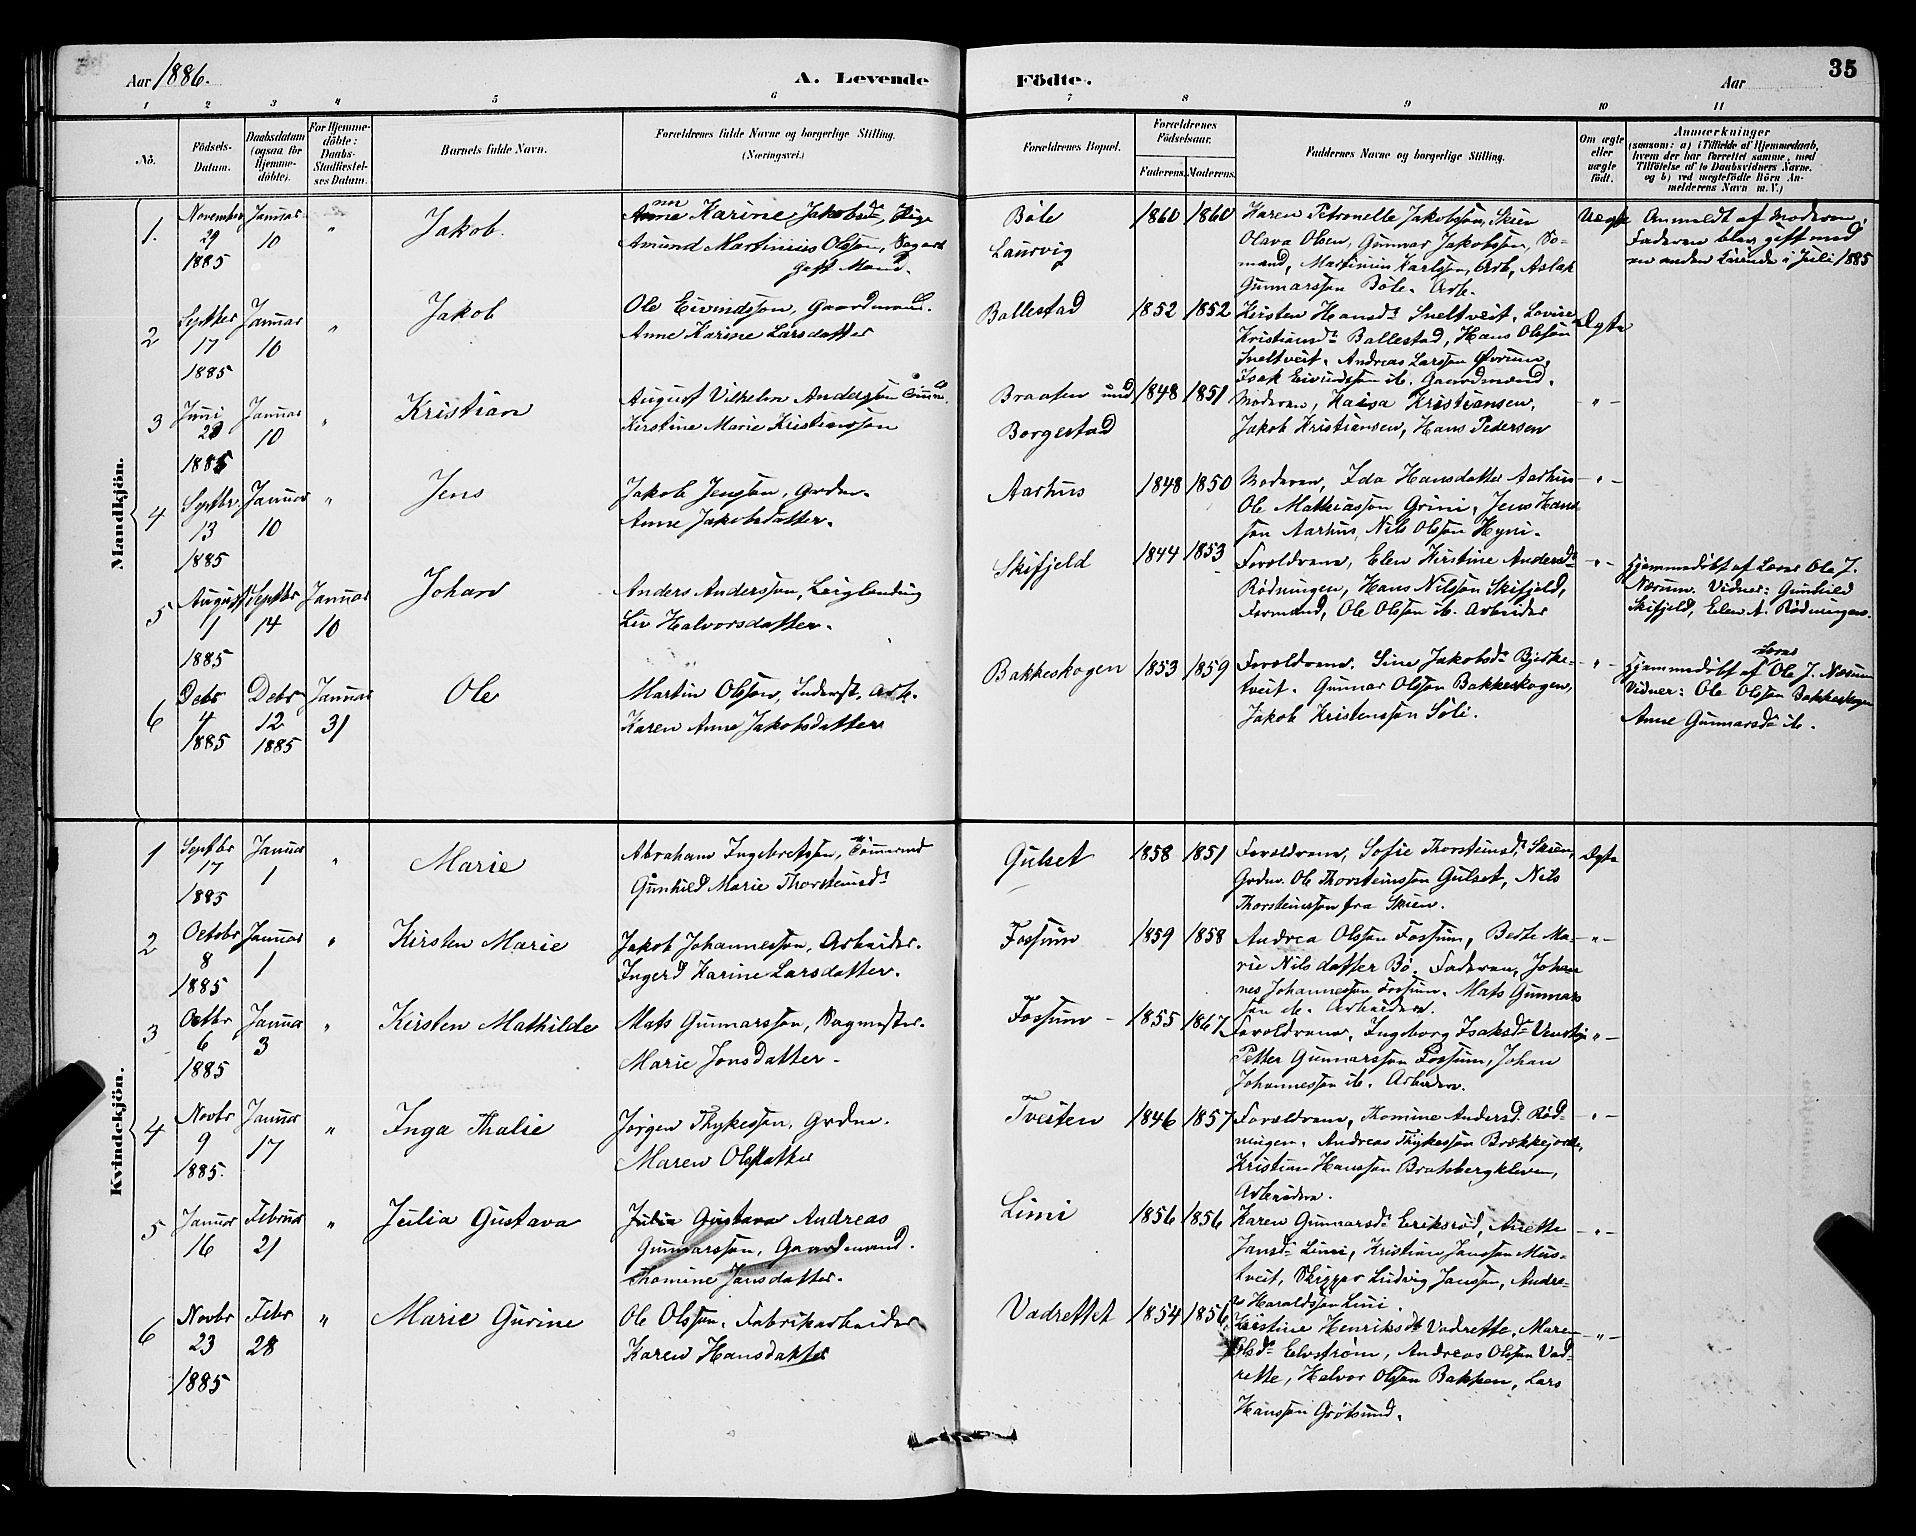 Aar 1886.
A. Levende
Födte.
Aar
35
1
2
3
4
5
6
7
8
9
10
11
No.
Födsels-
Datum.
Daabsdatum
(ogsaa for
Hjemme-
döbte).
For Hjemme-
döbte:
Daabs-
Stadfæstel-
ses Datum.
Barnets fulde Navn.
Forældrenes fulde Navne og borgerlige Stilling.
(Næringsvei.)
Forældrenes Bopæl.
Forældrenes
Födselsaar.
Faderens.
Moderens.
Faddernes Navne og borgerlige Stilling.
Om ægte
eller
uægte
födt.
Anmærkninger
(saasom: a) i Tilfælde af Hjemmedaab,
hvem der har forrettet samme, med
Tilföielse af to Daabsvidners Navne.
og b) ved uægtefödte Börn An-
melderens Navn m. V.)
Mandkjön.
1.
November
29
1885
Januar
10
"
Jakob.
Anne Karine Jakobsdr, Pige
Amund Martinius Olssøn,
Gift Mand.
Böle
Laurvig
1860
1860
Karen Petronelle Jakobssøn, Skien
Olava Olsen, Gunnar Jakobssøn, Sø-
mand, Martinius Karlssøn, Arb, Aslak
Gunnarssøn Böle. Arb.
Uægte
Anmeldt af Moderen,
Faderen blev gift med
en anden Kvinde i Juli 1885
2
Septber
17
1885
Januar
10
"
Jakob
Ole Eivindssøn, Gaardmand.
Anne Karine Larsdatter
Ballestad
1852
1852
Kirsten Hansdr Sneltveit, Lovise
Kristiansdr Ballestad, Hans Olssøn
Sneltveit. Andreas Larssøn
Isak Eivindssøn ib. Gaardmænd.
Ægte
3
Juni
1885
Januar
10
"
Kristian
August Vilhelm Anderssøn
Kirstine Marie Kristianssøn
Braaten und
Borgestad
1848
1851
Moderen, Kaisa Kristiansen,
Jakob Kristiansen, Hans Pedersen
- " -
4
Septbr
13
1885
Januar
10
"
Jens
Jakob Jenssøn, Grdbr.
Anne Jakobsdatter.
Aarhus
1848
1850
Moderen, Ida Hansdatter Aarhus
Ole Mathiassøn Grini, Jens Hans-
søn Aarhus, Nils Olssøn Hyni.
- " -
5
August
1
1885
Septbr
14
Januar
10
Johan
Anders Anderssøn, Leilænding
Liv Halvorsdatter.
Skifjeld
1844
1853
Forældrene, Elen Kirstine Andersdr
Rødningen, Hans Nilssøn Skifjeld,
Formand, Ole Olssøn ib. Arbeider
- " -
Hjemmedöbt af Lærer Ole J.
Næsum. Vidner: Gunhild
Skifjeld, Elen A. Rødningen.
6
Debr
4
1885
Debr
12
1885
Januar
31
Ole
Martin Olssøn, Inderst, Arb.
Karen Anne Jakobsdatter
Bakkeskogen
1853
1859
Forældrene. Sine Jakobsdr Bjerke-
tveit. Gunnar Olssøn Bakkeskogen,
Jakob Kristenssøn Söli.
- " -
Lærer
Hjemmedöbt af Ole J. Næsum
Vidner: Ole Olssøn Bakkeskogen
Anne Gunnarsdr ib.
Kvindekjön.
1
Septbr
17
1885
Januar
1
"
Marie
Abraham Ingebretssøn, Tömmermd
Gunhild Marie Thorsteinsdr
Gulset
1858
1851
Forældrene, Sofie Thorsteinsdr, Skien,
Grdbr. Ole Thorsteinssøn Gulset, Nils
Thorsteinssøn fra Skien.
Ægte
2
Octobr
8
1885
Januar
1
"
Kirsten Marie
Jakob Johannessøn, Arbeider.
Ingerd Karine Larsdatter.
Fossum
1859
1858
Andrea Olssøn Fossum, Berte Ma-
rie Nilsdatter Bö. Faderen, Johan-
nes Johannessøn Fossum. Mats Gunnars
søn ib. Arbeidere.
- " -
3
Octbr
6
1885
Januar
3
"
Kirsten Mathilde
Mats Gunnarssøn, Sagmester.
Marie Jonsdatter.
Fossum
1855
1867
Forældrene, Ingeborg Isaksdr Venstøp
Petter Gunnarssøn Fossum, Johan
Johannessøn ib. Arbeidere.
- " -
4
Novbr
9
1885.
Januar
17
"
Inga Thalie
Jörgen Thykessøn, Grdbr.
Maren Olsdatter
Tveiten
1846
1857
Forældrene, Thomine Andersd. Rød-
ningen. Andreas Thykessøn Brækkejorde,
Kristian Hanssøn Bratsbergkleven,
Arbeidere.
- " -
5
Januar
16
Februar
21
"
Julia Gustava
Julia Gustava Andreas
Gunnarssøn, Gaardmand.
Thomine Jansdatter.
Limi
1856
1856
Karen Gunnarsdr Eriksröd, Anette
Jansdr Limi, Kristian Janssøn Mus-
tveit, Skipper Ludvig Janssøn, Andre-
as Haraldssøn Limi.
- " -
6
Novbr
23
1885
Febr
28
"
Marie Gurine
Ole Olssøn. Fabrikarbeider
Karen Hansdatter
Vadrettet
1854
1856
Kirstine Henriksdr Vadrette, Maren
Olsdr Elvström, Andreas Olssøn Vad-
rette, Halvor Olssøn Bakken, Lars
Hanssøn Grötsund.
- " -